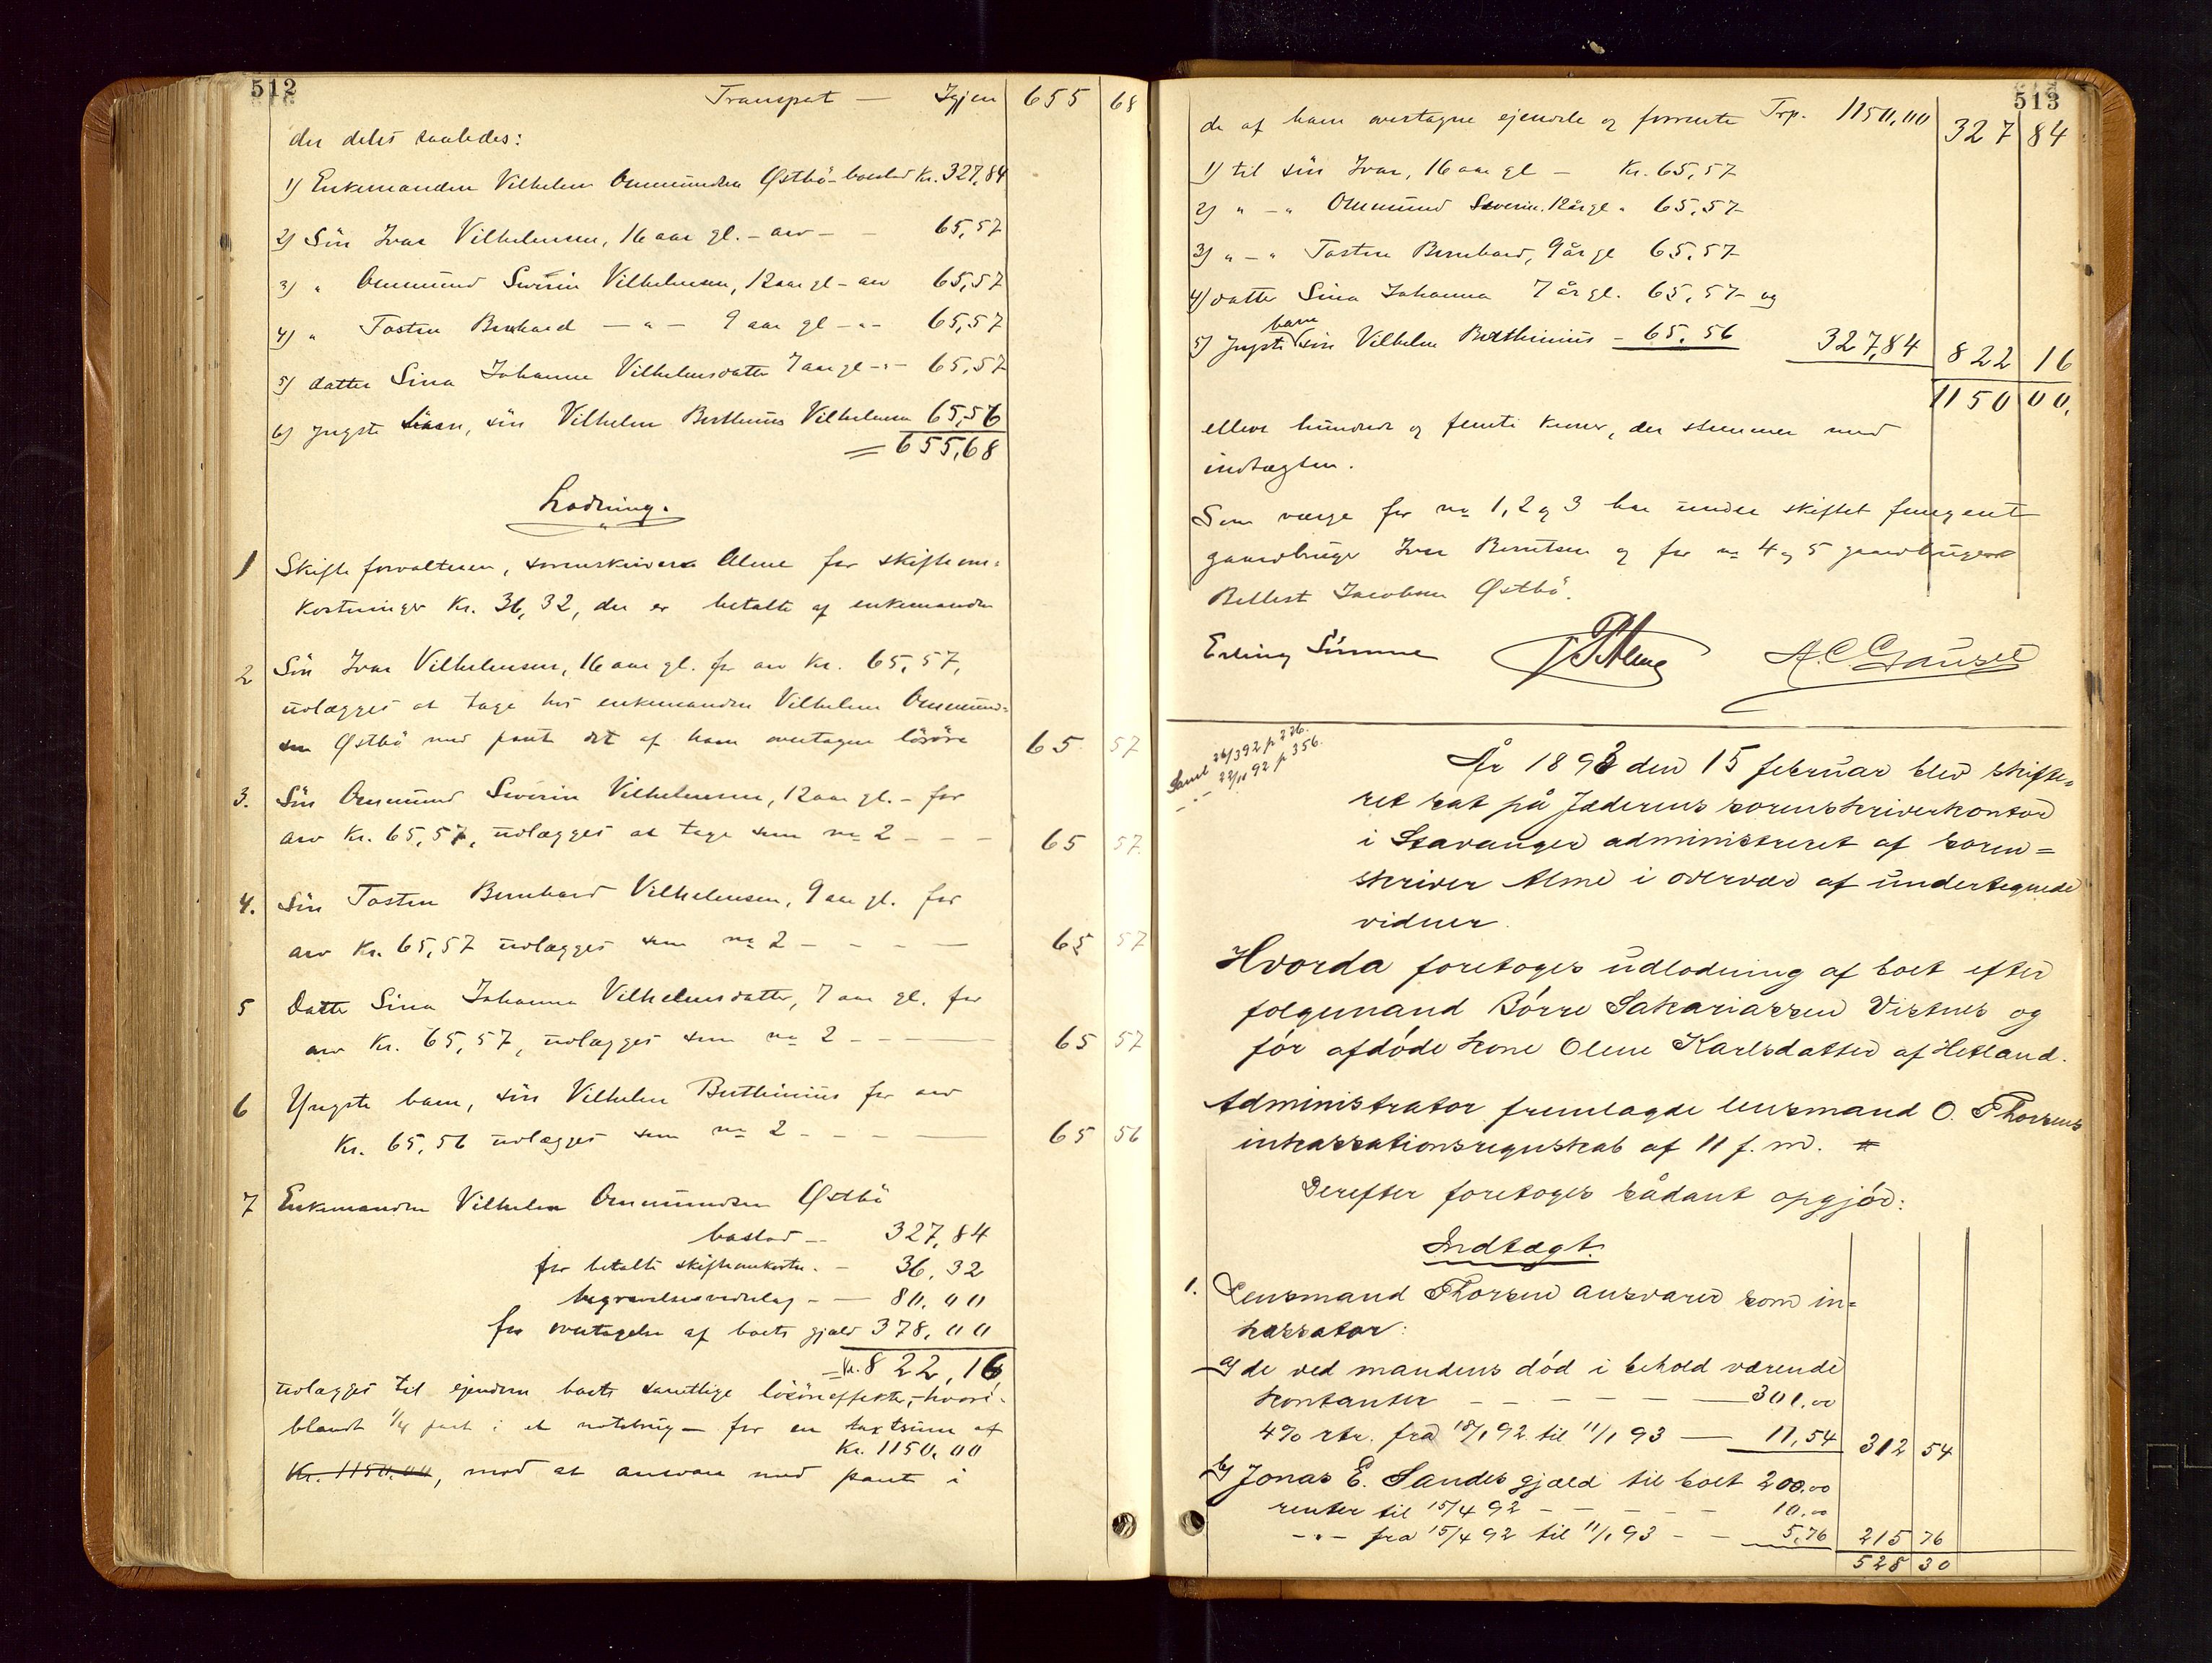 512
Transport — Igjen 655 68
der deles saaledes:
1) Enkemanden Vilhelm Ommundsen Østbö - boeslod Kr. 327,84
2) Sön Ivar Vilhelmsen, 16 aar gl. - arv - - 65,57
3) " Ommund Severin Vilhelmsen, 12 aar gl - arv 65,57
4) " Tosten Bernhard — " — 9 aar gl - " - 65,57
5) datter Sina Johanne Vilhelmsdatter 7 aar gl - " - 65,57
6) yngste barn, sön Vilhelm Berthinius Vilhelmsen 65,56
= 655,68
Lodning.
1 Skifteforvalteren, sorenskriver Alme for skifteom=
kostninger Kr. 36,32, der er betalte af enkemanden
2 Sön Ivar Vilhelmsen, 16 aar gl. for arv Kr. 65,57,
udlægges at tage hos enkemanden Vilhelm Ommund=
sen Østbö med pant i det af ham overtagne lösöre 65 57
3. Sön Ommund Severin Vilhelmsen, 12 aar gl. - for
arv Kr. 65,57, udlægges at tage som no 2 - - - 65 57
4. Sön Tosten Bernhard Vilhelmsen, 9 aar gl. for
arv Kr. 65,57 udlægges som no 2 - - - — 65 57
5 Datter Sina Johanna Vilhelmsdatter, 7 aar gl. for
arv Kr. 65,57, udlægges som no 2 - - - — 65 57
6 Yngste barn, sön Vilhelm Berthinius for arv
Kr. 65,56 udlægges som no 2 - - - — 65 56
7 Enkemanden Vilhelm Ommundsen Østbö
boslod - - 327,84
for betalte skifteomkostn. - 36,32
begravelsesvederlag - — 80,00
for overtagelse af boets gjæld 378,00
= Kr. 822,16
udlægges til ejendom boets samtlige lösöreeffekter, - hvori-
blandt 1/4 part i et notebrug - for en taxtsum af
Kr. 1150,00
Kr. 1150,00, mod at ansvare med pant i
513
de af ham overtagne ejendele og forrente Trp. 1150,00 327 84
1) til sön Ivar, 16 aar gl - Kr. 65,57
2) " - " Ommund Severin, 12 år gl " 65,57
3) " - " Tosten Bernhard, 9 år gl 65,57
4) datter Sina Johanna 7 år gl. 65,57 og
5) yngste barn sön Vilhelm Berthinius - 65,56 327,84 822 16
1150 00.
elleve hundrede og femti kroner, der stemmer med
indtægten.
Som værge for no 1, 2 og 3 har under skiftet fungeret
gaardbruger Ivar Berntsen og for no 4 og 5 gaardbruger
Bellest Jacobsen Østbö.
Erling Sömme Alme A. C. Gausel
Saml 26/3 92 p 226.
- " - 22/11 92 p 356.
År 1893 den 15 februar blev skifte-
ret sat på Jæderens sorenskriverkontor
i Stavanger administreret af soren=
skriver Alme i overvær af undertegnede
vidner.
Hvorda foretoges udlodning af boet efter
følgemand Børre Sakariassen Vistnes og
før afdøde kone Olene Karlsdatter af Hetland.
Administrator fremlagde lensmand O. Thorsens
inkassationsregnskab af 11 f. m. #
Derefter foretoges sådant opgjør:
Indtægt.
1. Lensmand Thorsen ansvarer som in=
kassator:
a) de ved mandens død i behold værende
kontanter - - - - — 301.00
4% rtr. fra 18/1 92 til 11/1 93 — 11,54 312 54
b) Jonas E. Sandes gjæld til boet 200.00
renter til 15/4 92 - - - - 10.00
- " - fra 15/4 92 til 11/1 93 - - 5,76 215 76
528 30